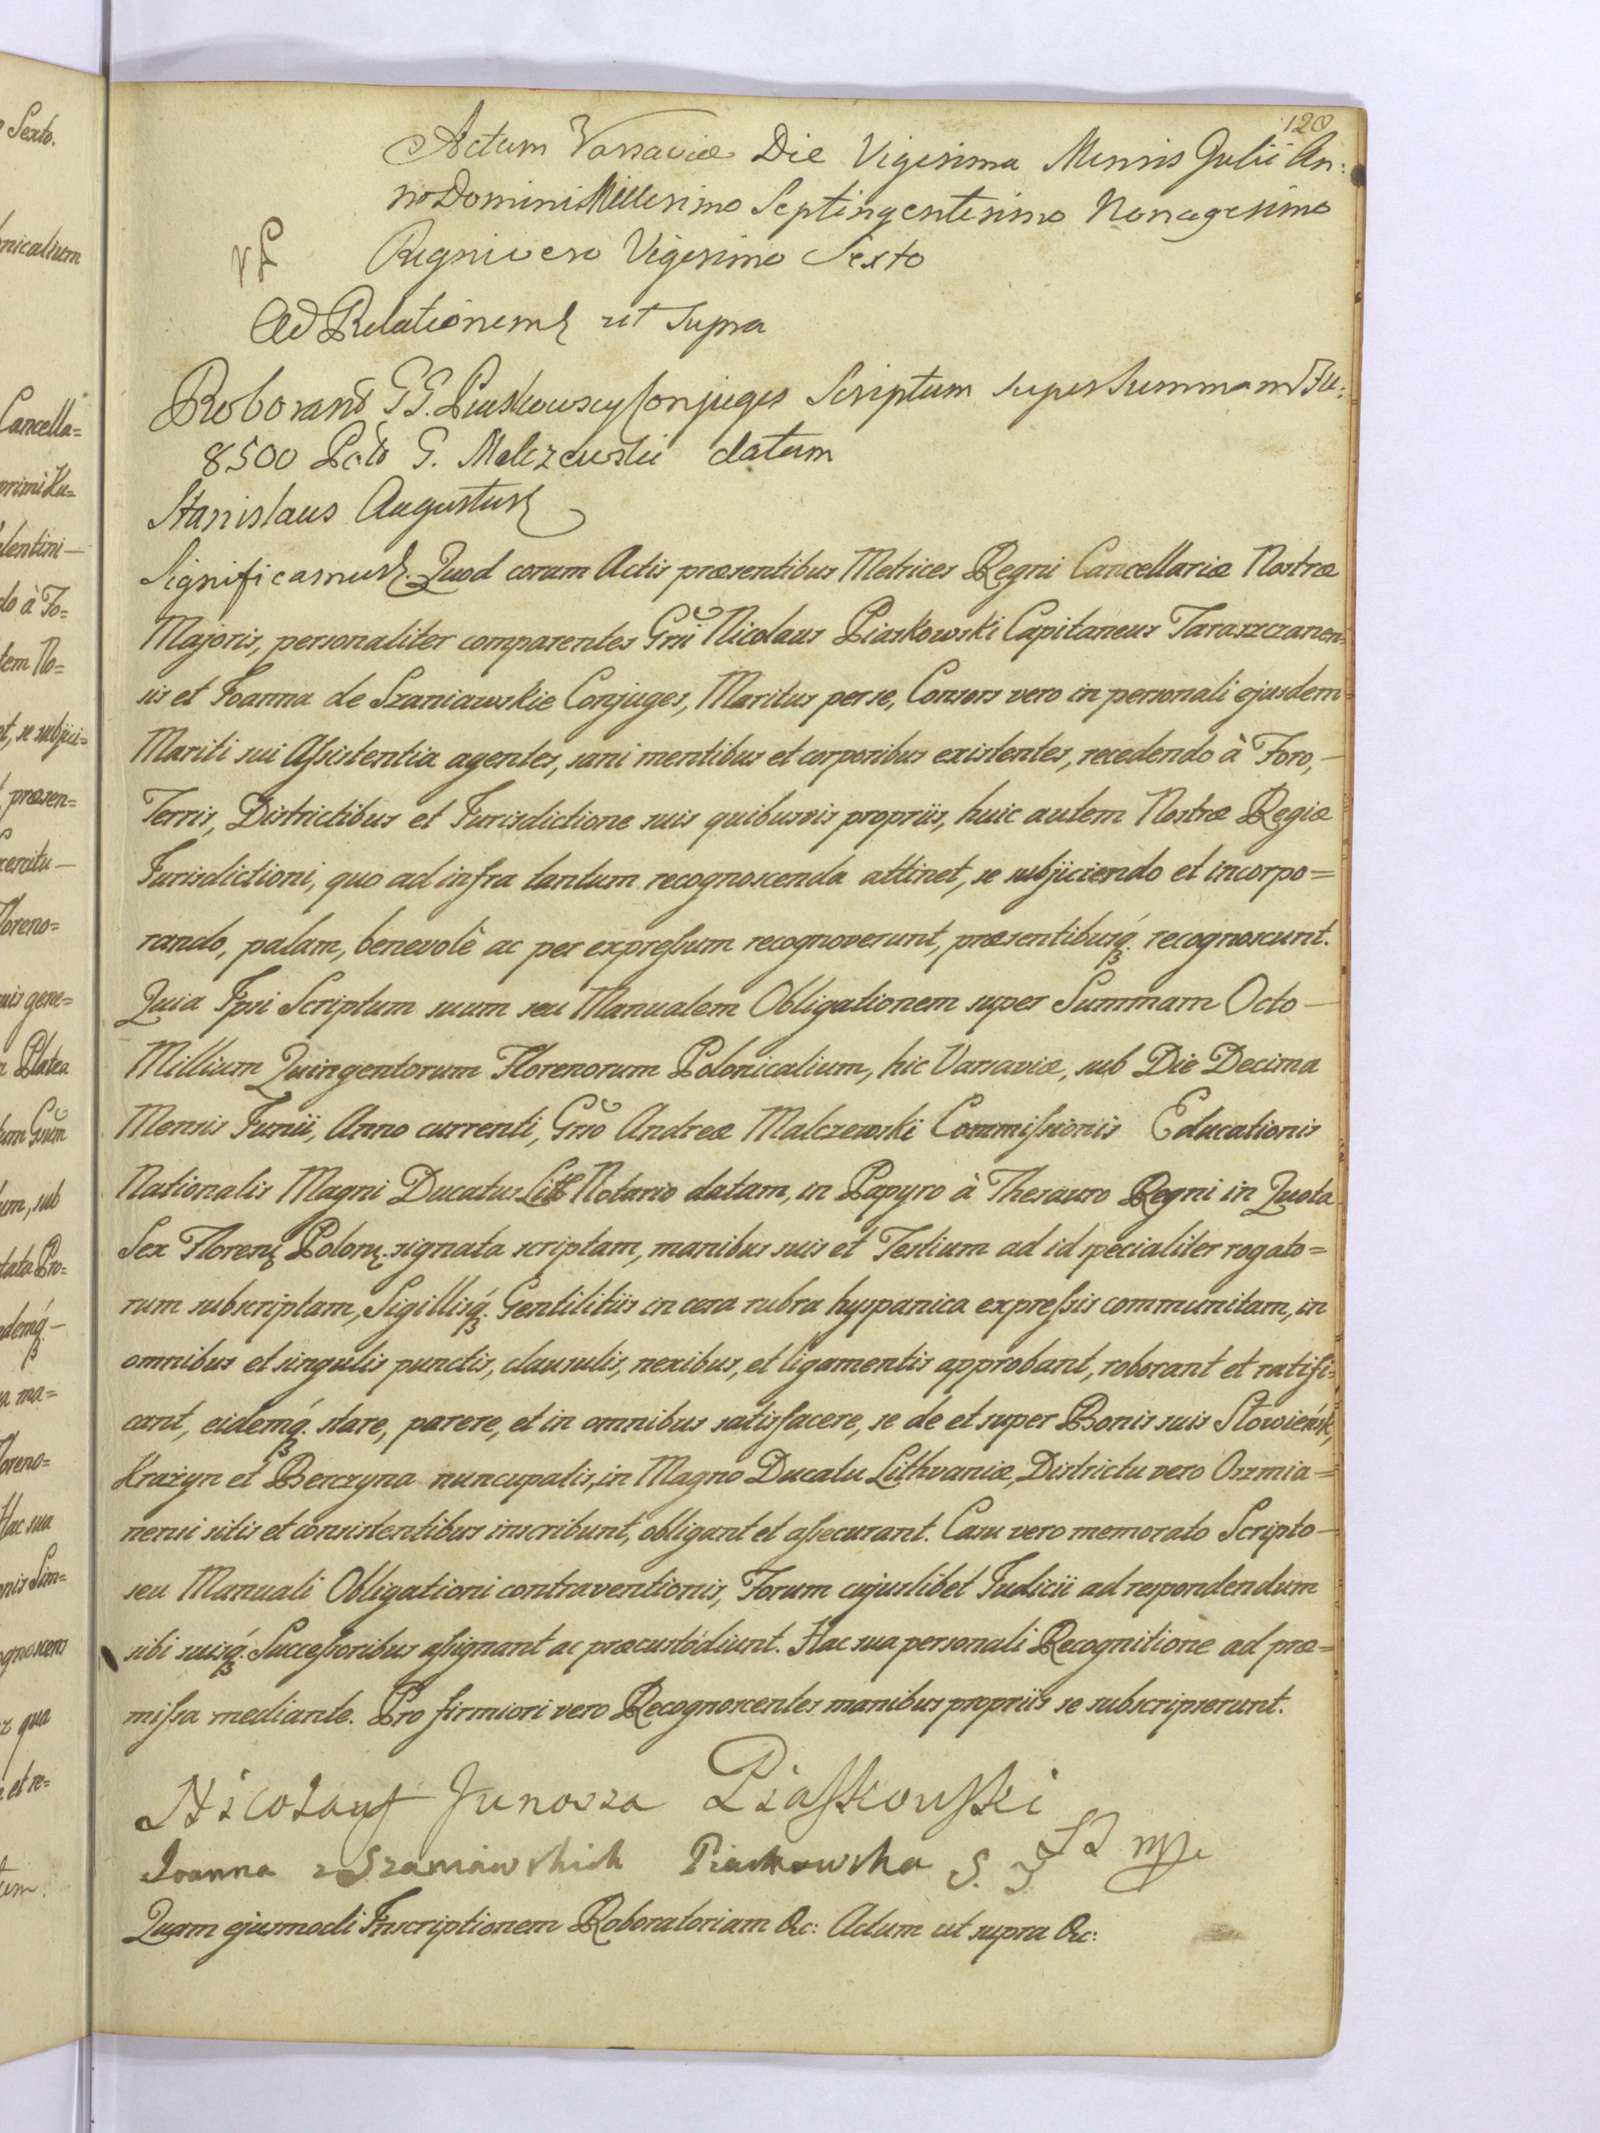 120
Actum Varsaviæ Die Vigesima Mensis Julii An:
no Domini Millesimo Septingentesimo Nonagesimo
Regni vero Vigesimo Sexto
Ad Relationem ut supra
Roborand GG. Piaskowscy Conjuges Scriptum super Summam Flr:
8500 G. Malczewski datum
Stanislaus Augustus
Significamus. Quod coram Actis præsentibus Metrices Regni Cancellariæ Nostræ
Majoris, personaliter comparentes Gsii Nicolaus Piaskowski Capitaneus Taraszczanen=
sis et Joanna de Szaniawskie Conjuges, Maritus per se, Consors vero in personali ejusdem
Mariti sui Assistentia agentes, sani mentibus et corporibus existentes, recedendo à Foro,
Terris, Districtibus et Jurisdictione suis quibusvis propriis, huic autem Nostræ Regiæ
Jurisdictioni, quo ad infra tantum recognoscenda attinet, se subjiciendo et incorpo=
rando, palam, benevolè ac per expressum recognoverunt, præsentibusq. recognoscunt.
Quia Ipsi Scriptum suum seu Manualem Obligationem super Summam Octo
Millium Quingentorum Florenorum Polonicalium, hic Varsaviæ, sub Die Decima
Mensis Junii, Anno currenti, Gso Andreæ Malczewski Commissionis Educationis
Nationalis Magni Ducatus Lith Notario datam, in Papyro à Thesauro Regni in Quota
Sex Floren Polon. signata scriptam, manibus suis et Testium ad id specialiter rogato=
rum subscriptam, Sigillisq. Gentilitiis in cera rubra hyspanica expressis communitam, in
omnibus et singulis punctis, clausulis, nexibus, et ligamentis approbant, roborant et ratifi=
cant, eidemq. stare, parere, et in omnibus satisfacere, se de et super Bonis suis Słowieńsk,
Krażyn et Berczyna nuncupatis, in Magno Ducatu Lithvaniæ, Districtu vero Oszmia=
nensi sitis et consistentibus inscribunt, obligant et assecurant. Casu vero memorato Scripto
seu Manuali Obligationi contraventionis, Forum cujuslibet Judicii ad respondendum
sibi suisq. Successoribus assignant ac præcustodiunt. Hac sua personali Recognitione ad præ=
missa mediante. Pro firmiori vero Recognoscentes manibus propriis se subscripserunt.
Nicolaus Junosza Piaskowski
Joanna z Szaniawskich Piaskowska S. T.
Quam ejusmodi Inscriptionem Roboratoriam &c: Actum ut supra &c: